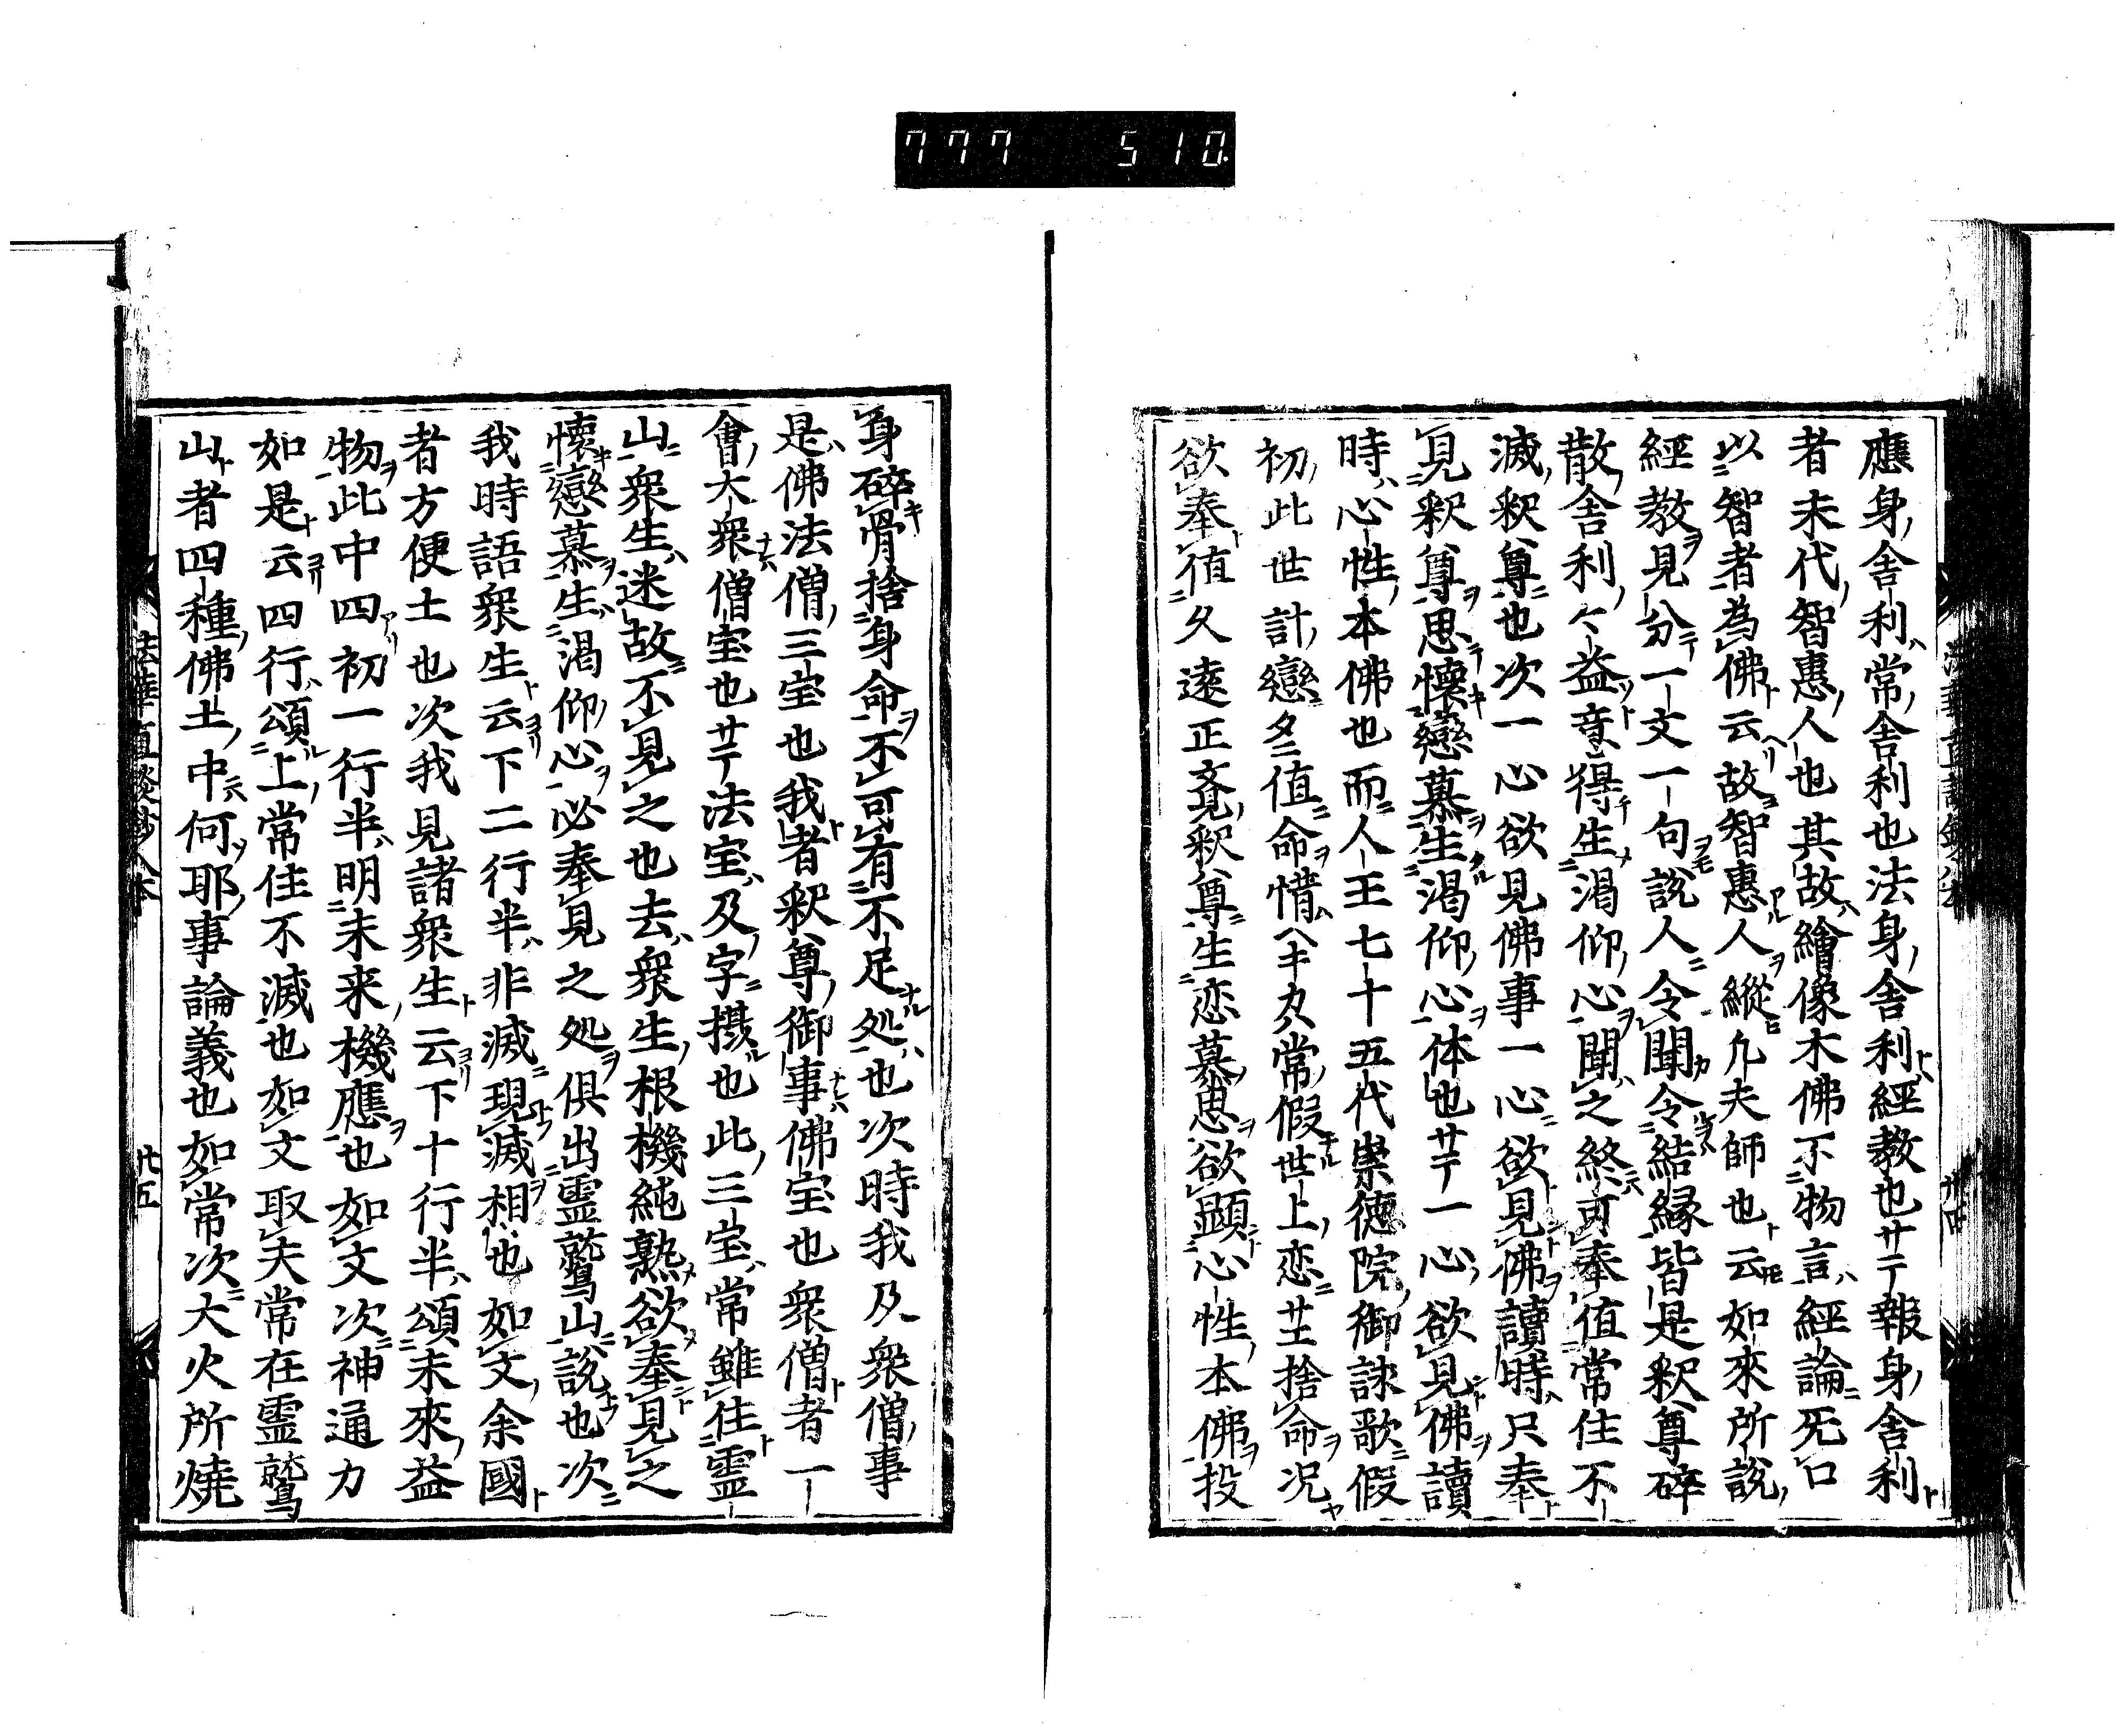 777 510
應身舎利常舎利也法身舎利經教也廿丁報身舎利
者末代智惠人也其故繪像木佛不物言經論死口
以智者為佛云故智惠人縱凢夫師也云如來所説
經教見分一文一句說人令聞令結縁皆是釈尊碎
散舎利々益意得生渇仰心聞之終可奉值常住不
滅釈尊也次一心欲見佛事一心欲見佛讀時只奉
見釈尊思懷戀慕生渇仰心体也廿丁一心欲見佛讀
時心性本佛也而人王七十五代崇德院御詠歌假
初此世計戀タニ值命惜ヘキカハ常假世上恋廿土捨命况
欲奉值久遠正覔釈尊生恋慕思欲顕心性本佛投
身碎骨捨身命不可有不足処也次時我及衆僧事
是佛法僧三宝也我者釈尊御事佛宝也衆僧者一
會大衆僧宝也廿丁法宝及字摂也此三宝常雖住霊
山衆生迷故不見之也去衆生根機純熟欲奉見之
懷戀慕生渇仰心必奉見之処俱出霊鷲山說也次
我時語衆生云下二行半非滅現滅相也如文余國
者方便土也次我見諸衆生云下十行半頌未來益
物此中四初一行半明未来機應也如文次神通力
如是云四行頌上常住不滅也如文取夫常在霊鷲
山者四種佛土中何耶事論義也如常次大火所燒
法華直談鈔八本 廿五